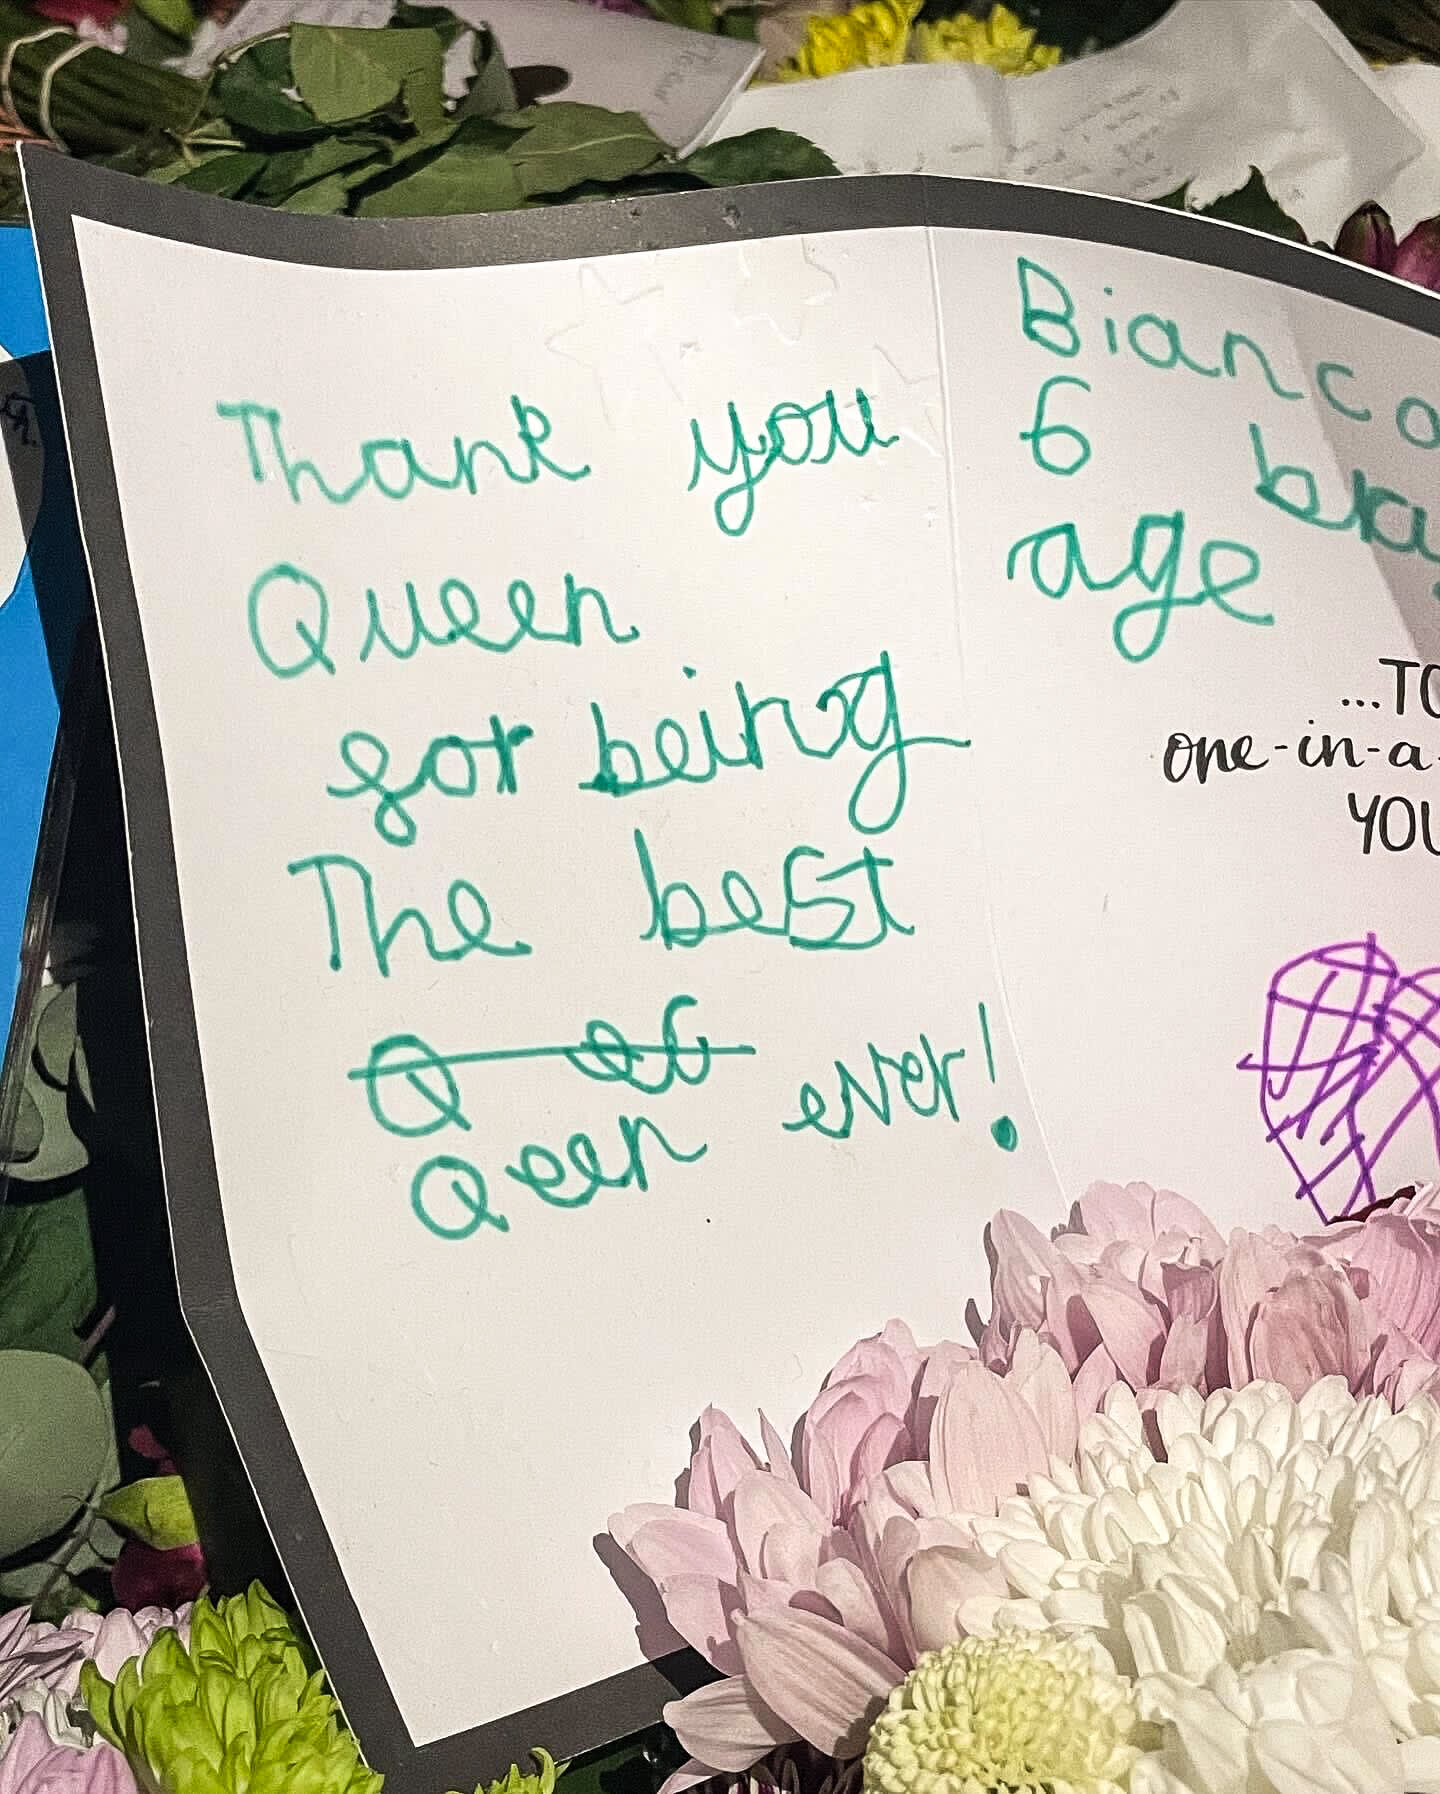 Thank you
Queen
for being
The best
Q ee
Qeen ever!
Bianca
6
age
...TO
one-in-a-
YOU